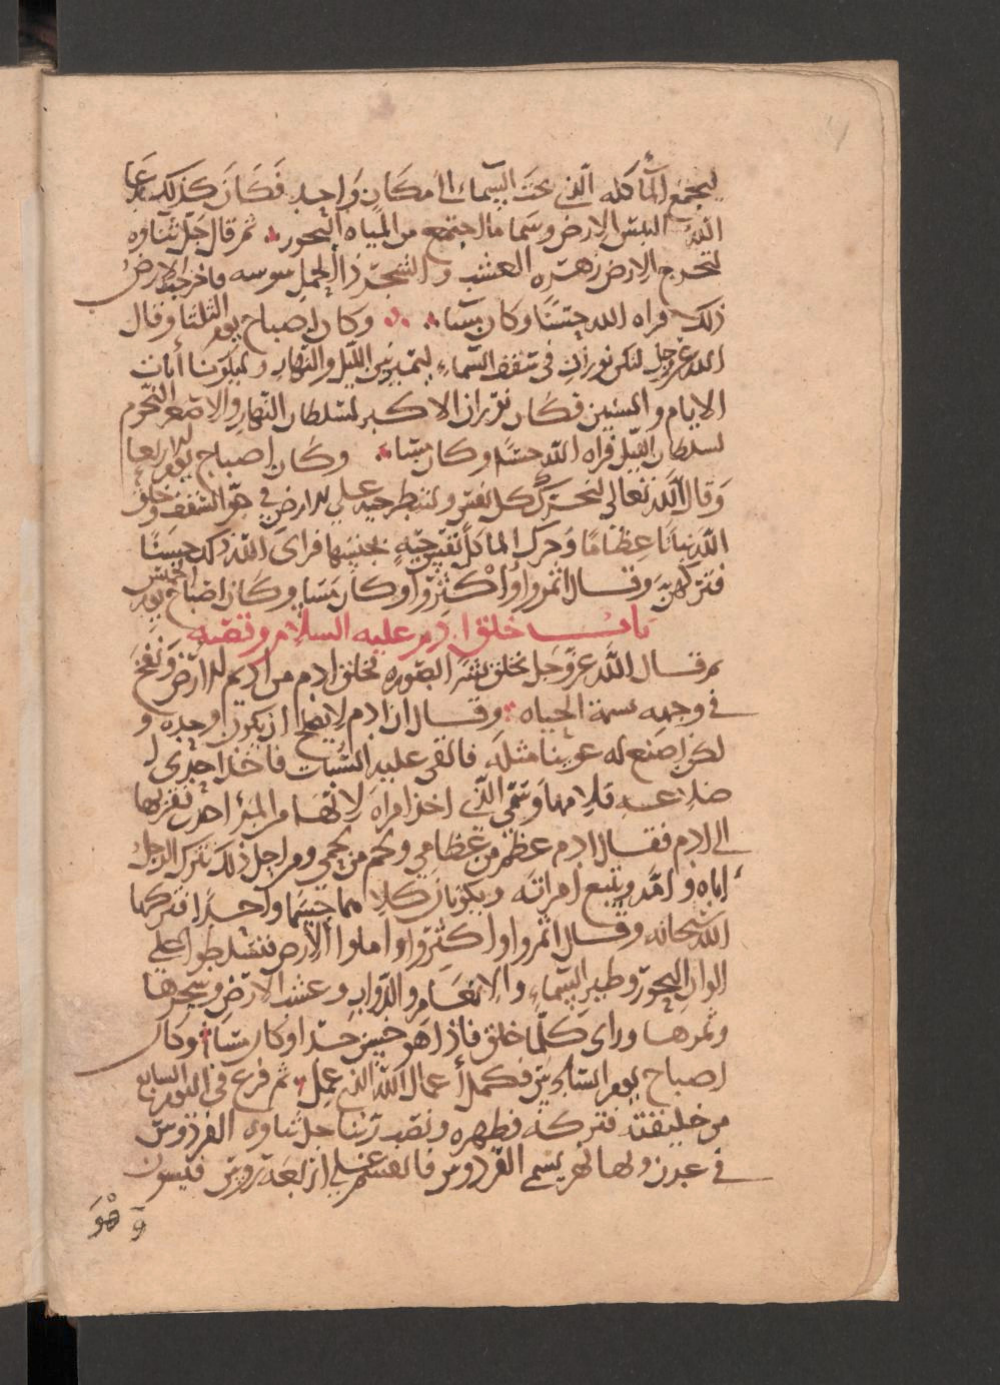 ليجمع المآ كله الذي تحت السماء الى مكان واحد فكان كذلك
الله اليبس الارض وسما ما اجتمع من المياه البحور ثم قال جل ثناوه
لتخرج الارض زهره العشب والشجر ذا الحمل سوسه فاخرجت الارض
ذلك فراه الله حسنا وكان مسا وكان اصباح يوم الثلثا وقال
الله عز وجل لتكن نوران في سقف السماء ليتميز بين الليل والنهار وليكونا أيات
الايام والسنين فكان نوران الاكبر لسلطان النهار والاصغر والنجوم
لسلطان الليل فراه الله حسنا وكان مسا وكان اصباح يوم الاربعا
وقال الله تعالى لتحرك كل نفس ولتطير حيه على الارض في جو السقف وخلق
الله عظاما وحرك الما كل نفس حيه بجنسها فراى الله ذلك حسنا
فتركهن وقال اثمروا واكثروا وكان مسا وكان اصباح يوم الخميس
باب خلق ادم عليه السلام وقصته
ثم قال الله عز وجل نخلق بشر الصوره فخلق ادم من اديم الارض ونفخ
في وجهه نسمة الحياه وقال ان ادم لا يصلح ان يكون وحده و
لكن اصنع له عوينا مثله فالقى عليه السبات فاخذ احدى
ضلاعه فلامها وسمى الذي اخذ امراه لانها من المرء اخذت فقربها
الى ادم فقال ادم عظم من عظامي ولحم من لحمي ومن اجل ذلك يترك الرجل
اباه وامه ويتبع امراته ويكونان كلاهما جسما واحدا فتركهما
الله سبحانه وقال اثمروا واكثروا واملوا الارض تتسلطوا على
الوان البحور وطير السماء والانعام والدواب وعشب الارض وشجرها
وثمرها وراى كلما خلق فاذا هو حسن جدا وكان مسا وكان
اصباح يوم السادس فكمل أعمال الله الذي عمل ثم فرغ في اليوم السابع
من خليقته فتركه فطهره ونصب ربنا جل ثناوه الفردوس
في عدن ولها نهر يسمى الفردوس فانقسم على اربعة روس فيسون
و هو